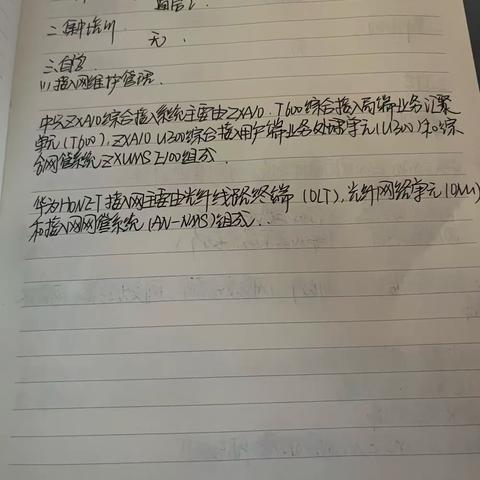 二.集中培训
无.
三.自学
(1)接入网维护管理.
中兴ZXA10综合接入系统主要由ZXA10.T600综合接入局端业务汇聚
单元(T600),ZXA10 U300综合接入用户端业务处理单元(U300)和综
合网管系统ZXUMS Z100组成.
华为HONET接入网主要由光纤线路终端(OLT),光纤网络单元(ONU)
和接入网网管系统(AN-NMS)组成.